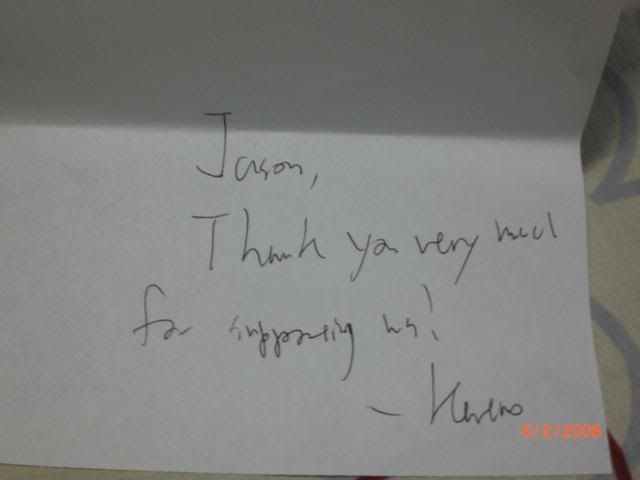 Jason,
Thank you very much
for supporting us!
-
5/2/2008